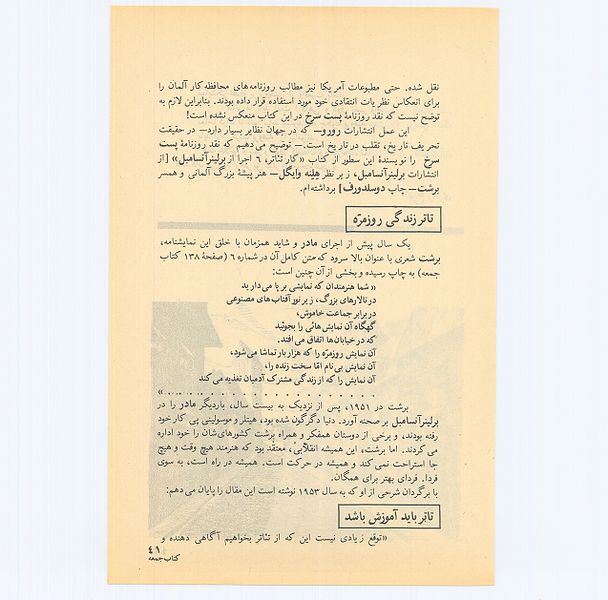 نقل شده. حتی مطبوعات آمریکا نیز مطالب روزنامه‌های محافظه‌کار آلمان را
برای انعکاس نظریات انتقادی خود مورد استفاده قرار داده بودند. بنابراین لازم به
توضح نیست که نقد روزنامهٔ پست سرخ در این کتاب منعکس نشده است!
این عمل انتشارات رورو — که در جهان نظایر بسیار دارد — در حقیقت
تحریف تاریخ، تقلب در تاریخ است. — توضیح می‌دهیم که نقد روزنامهٔ پست
سرخ را نویسندهٔ این سطور از کتاب «کار تئاتر، ۶ اجرا از برلینرآنسامبل» [از
انتشارات برلینرآنسامبل، زیر نظر هلنه وایگل — هنرپیشهٔ بزرگ آلمانی و همسر
برشت — چاپ دوسلدورف] برداشته‌ام.
تاتر زندگی روزمرّه
یک سال پیش از اجرای مادر و شاید همزمان با خلق این نمایشنامه،
برشت شعری با عنوان بالا سرود که متن کامل آن در شماره ۶ (صفحهٔ ۱۳۸ کتاب
جمعه) به چاپ رسیده و بخشی از آن چنین است:
«شما هنرمندان که نمایشی بر پا می‌دارید
در تالارهای بزرگ، زیر نور آفتاب‌های مصنوعی
در برابر جماعت خاموش،
گهگاه آن نمایش‌هائی را بجوئید
که در خیابان‌ها اتفاق می‌افتد.
آن نمایش روزمرّه را که هزار بار تماشا می‌شود،
آن نمایش بی‌نام امّا سخت زنده را،
آن نمایش را که از زندگی مشترک آدمیان تغذیه می‌کند
. . . . . . . . . . . . . . . . . . . . . . »
برشت در ۱۹۵۱، پس از نزدیک به بیست سال، باردیگر مادر را در
برلینرآنسامبل بر صحنه آورد. دنیا دگرگون شده بود، هیتلر و موسولینی پی کار خود
رفته بودند، و برخی از دوستان همفکر و همراه برشت کشورهای‌شان را خود اداره
می‌کردند. اما برشت، این همیشه انقلابی، معتقد بود که هنرمند هیچ وقت و هیچ
جا استراحت نمی‌کند و همیشه در حرکت است. همیشه در راه است، به سوی
فردا. فردای بهتر برای همگان.
با برگردان شرحی از او که به سال ۱۹۵۳ نوشته است این مقال را پایان می‌دهم:
تاتر باید آموزش باشد
«توقع زیادی نیست این که از تئاتر بخواهیم آگاهی دهنده و
۴۱
کتاب جمعه